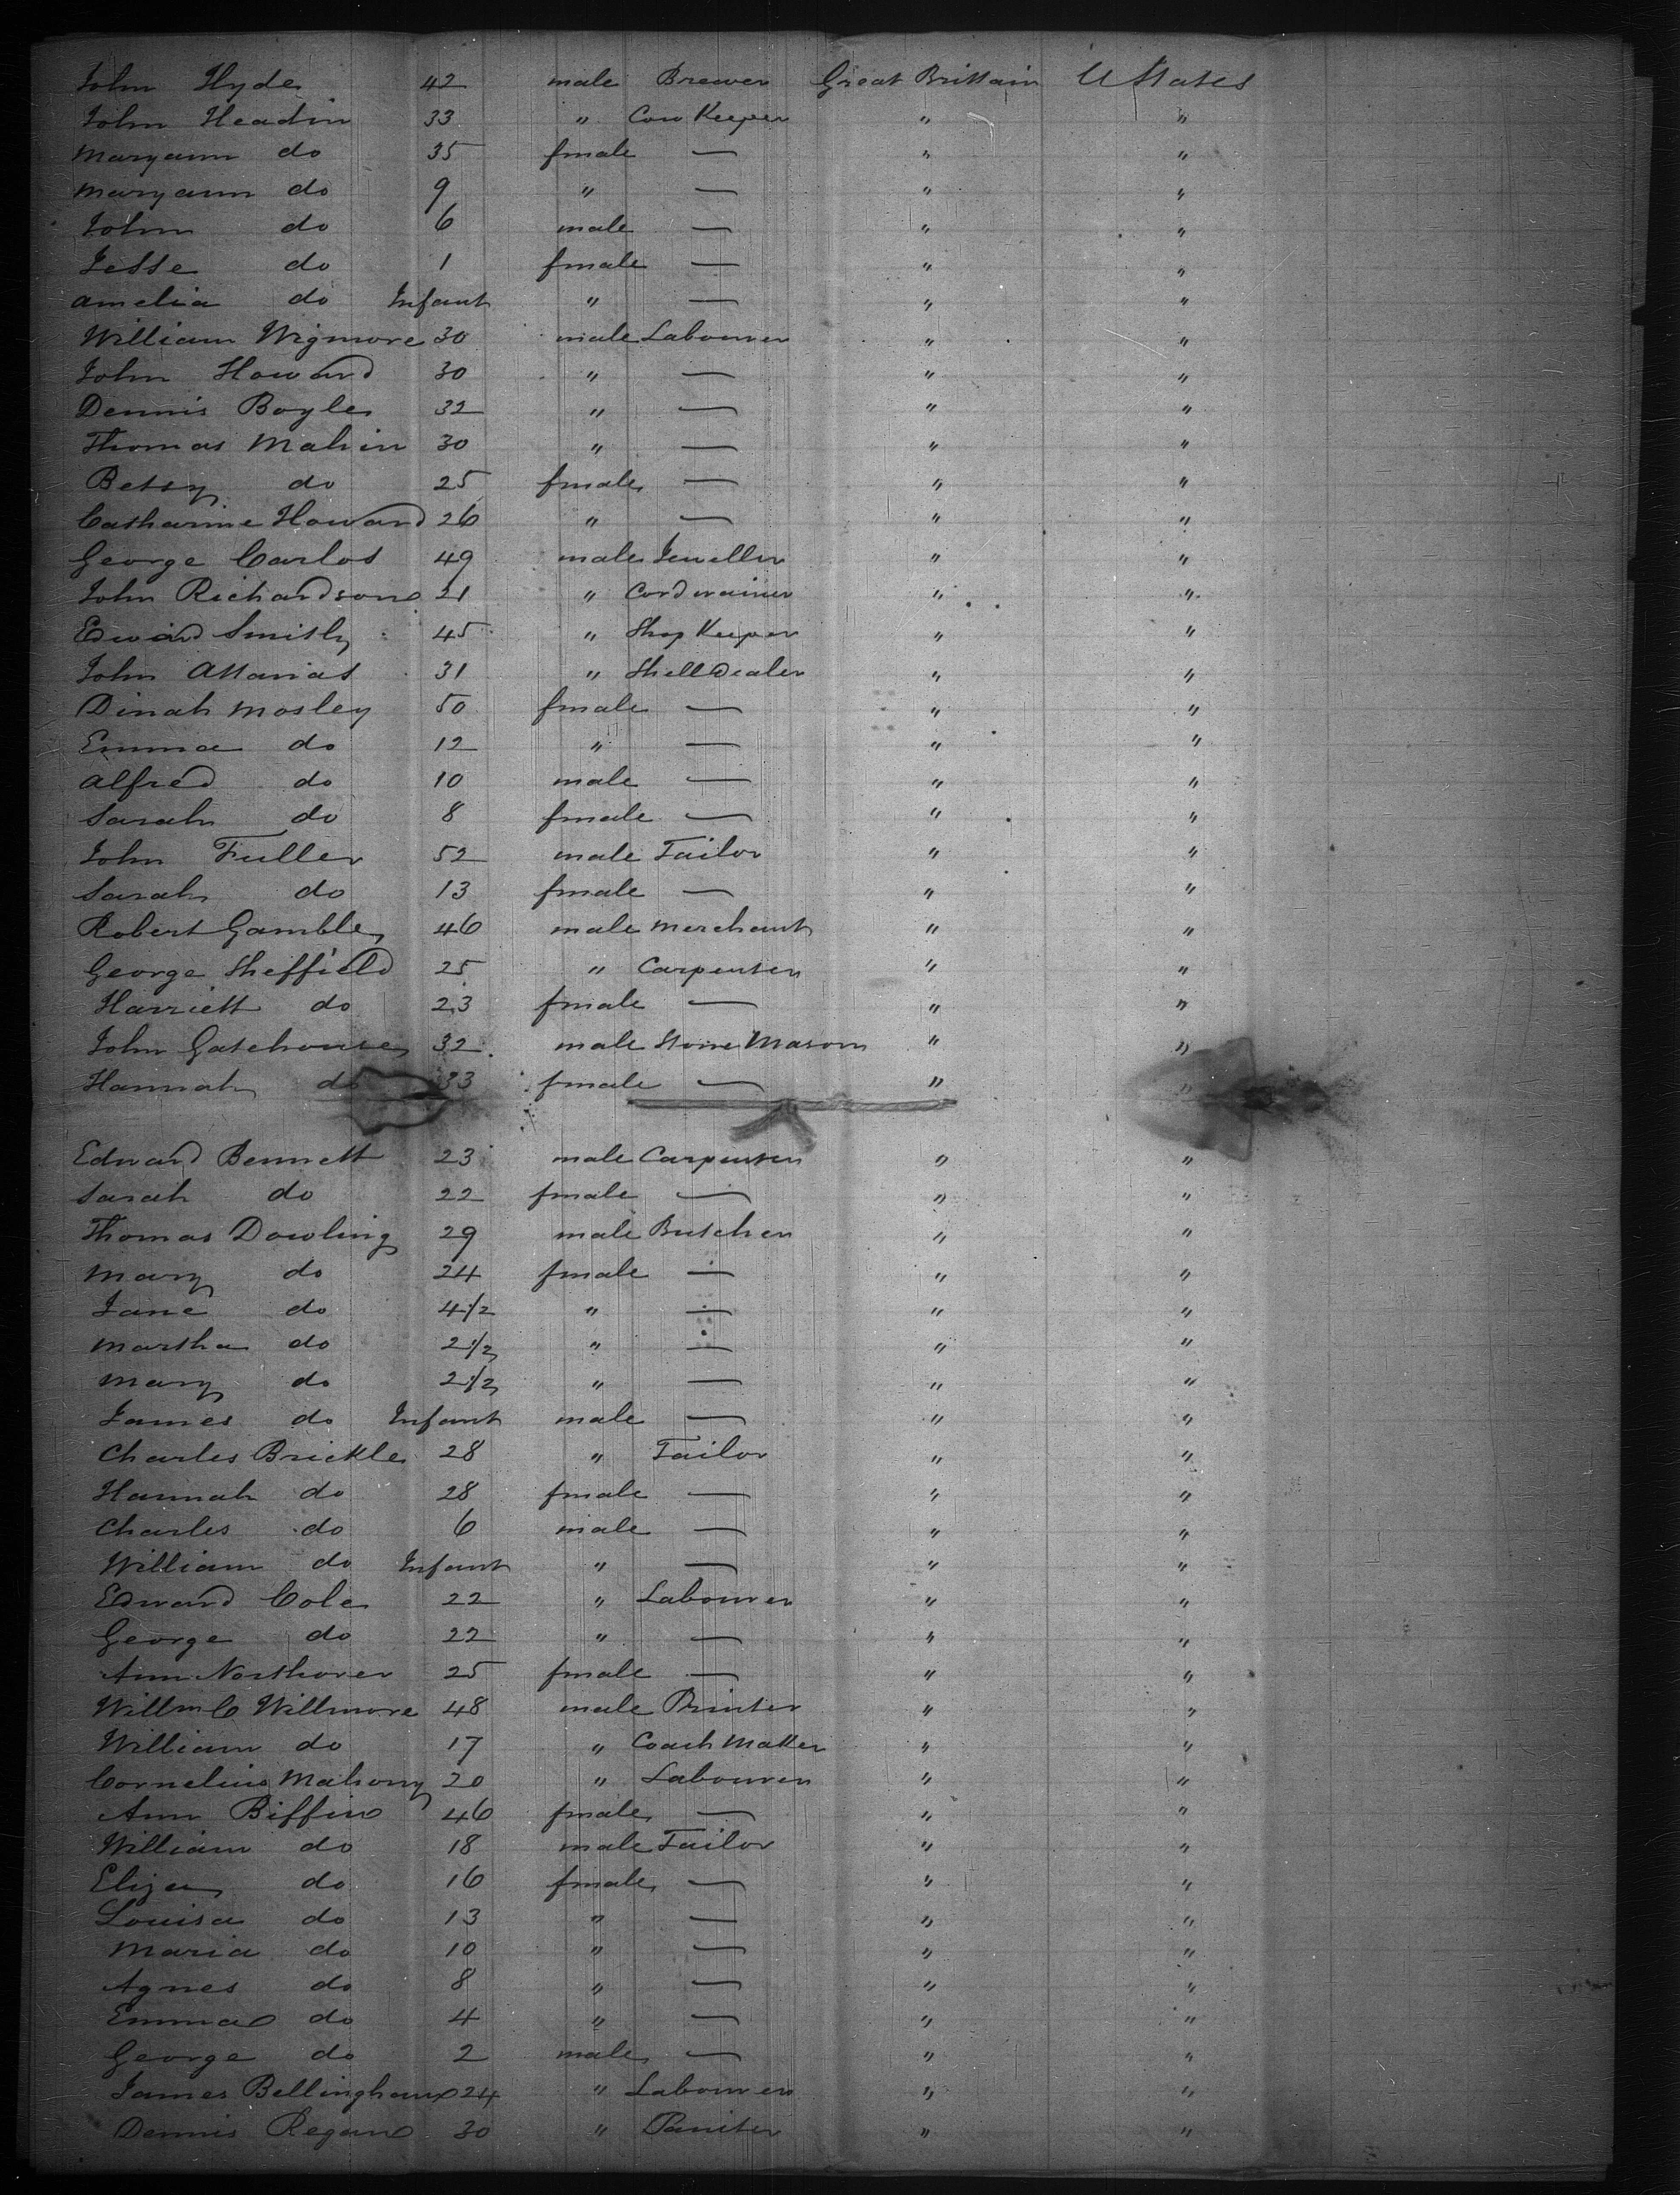 John Hyde 42 male Brewer Great Brittain U States
John Headin 33 " Cow Keeper " "
Maryann do 35 fmale — " "
Maryann do 9 " — " "
John do 6 male — " "
Jesse do 1 fmale — " "
Amelia do Infant " — " "
William Wigmore 30 male Labourer " "
John Howard 30 " — " "
Dennis Boyle 32 " — " "
Thomas Mahin 30 " — " "
Betsy do 25 fmale — " "
Catharine Howard 26 " — " "
George Carlos 49 male Jeweller " "
John Richardson 21 " Cordwainer " "
Edward Smith 45 " Shop Keeper " "
John 31 " Shell Dealer " "
Dinah Mosley 50 fmale — " "
Emma do 12 " — " "
Alfred do 10 male — " "
Sarah do 8 fmale — " "
John Fuller 52 male Tailor " "
Sarah do 13 fmale — " "
Robert Gamble 46 male Merchant " "
George Sheffield 25 " Carpenter " "
Harriett do 23 fmale — " "
John Gatehouse 32 male Stone Mason " "
Hannah do 33 fmale — " "
Edward Bennett 23 male Carpenter " "
Sarah do 22 fmale — " "
Thomas Dowling 29 male Butcher " "
Mary do 24 fmale — " "
Jane do 4 1/2 " — " "
Martha do 2 1/2 " — " "
Mary do 2 1/2 " — " "
James do Infant male — " "
Charles Brickle 28 " Tailor " "
Hannah do 28 fmale — " "
Charles do 6 male — " "
William do Infant " — " "
Edward Cole 22 " Labourer " "
George do 22 " — " "
Ann Northover 25 fmale — " "
Willm C Willmore 48 male Printer " "
William do 17 " Coach Maker " "
Cornelius Mahony 20 " Labourer " "
Ann Biffin 46 fmale — " "
William do 18 male Tailor " "
Eliza do 16 fmale — " "
Louisa do 13 " — " "
Maria do 10 " — " "
Agnes do 8 " — " "
Emma do 4 " — " "
George do 2 male — " "
James Bellingham 24 " Labourer " "
Dennis Regan 30 " Paniter " "